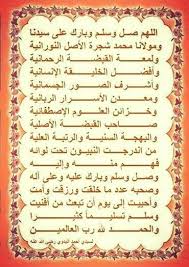 اللهم صل وسلم وبارك على سيدنا
ومولانا محمد شجرة الأصل النورانية
ولمعة القبضة الرحمانية
وأفضل الخليقة الإنسانية
وأشرف الصور الجسمانية
ومعدن الأسرار الربانية
وخزائن العلوم الاصطفائية
صاحب القبضة الأصلية
والبهجة السنية والرتبة العلية
من اندرجت النبيون تحت لوائه
فهم منه وإليه
وصل وسلم وبارك عليه وعلى آله
وصحبه عدد ما خلقت ورزقت وأمت
وأحييت إلى يوم أن تبعث من أفنيت
وسلم تسليماً كثيرا
والحمد لله رب العالمين
لسيدي أحمد البدوي رضي الله عنه